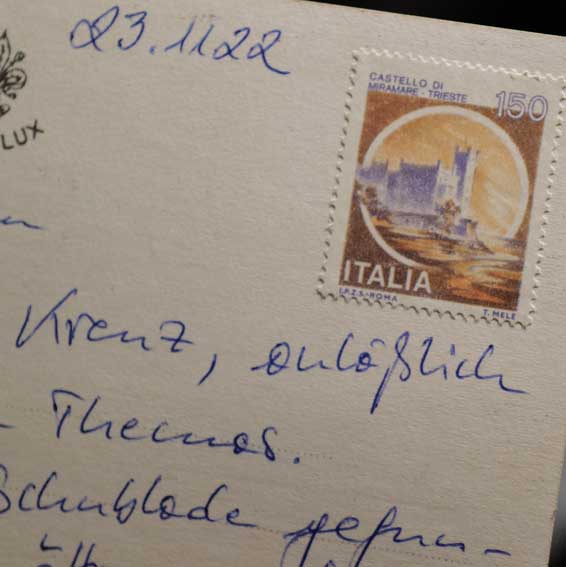 23.11.22
LUX
CASTELLO DI
MIRAMARE - TRIESTE
150
ITALIA
I.P.Z.S.-ROMA
T. MELE
Krenz, anläßlich
Themas.
Schublade gefun-